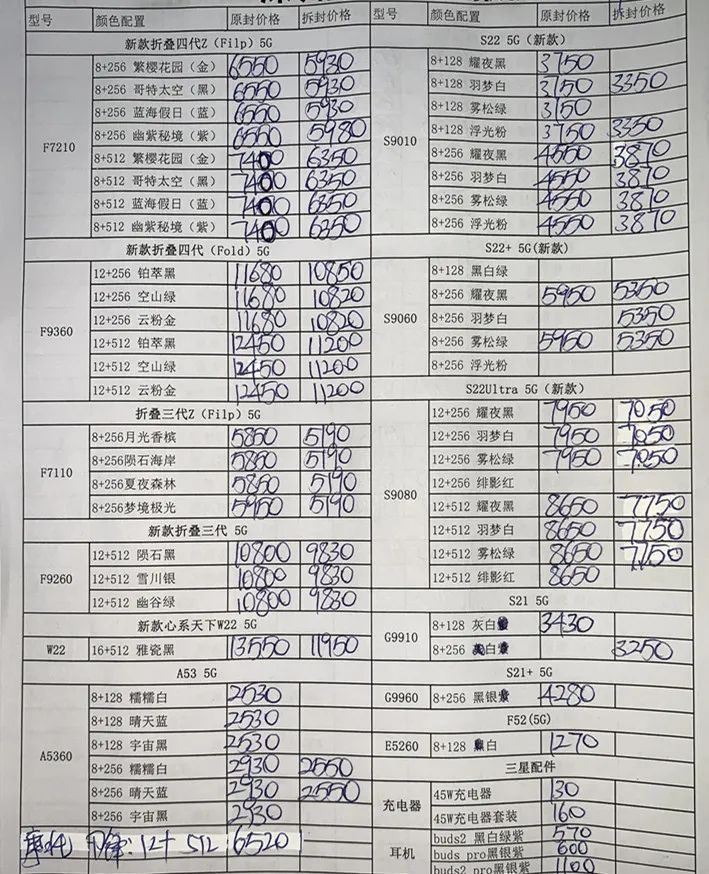 型号 颜色配置 原封价格 拆封价格
新款折叠四代Z（Filp）5G
F7210
8+256 繁樱花园（金） 6550 5930
8+256 哥特太空（黑） 6550 5930
8+256 蓝海假日（蓝） 6550 5930
8+256 幽紫秘境（紫） 6550 5980
8+512 繁樱花园（金） 7400 6350
8+512 哥特太空（黑） 7400 6350
8+512 蓝海假日（蓝） 7400 6350
8+512 幽紫秘境（紫） 7400 6350
新款折叠四代（Fold）5G
F9360
12+256 铂萃黑 11680 10850
12+256 空山绿 11680 10820
12+256 云粉金 11680 10820
12+512 铂萃黑 12450 11200
12+512 空山绿 12450 11200
12+512 云粉金 12450 11200
折叠三代Z（Filp）5G
F7110
8+256月光香槟 5850 5190
8+256陨石海岸 5850 5190
8+256夏夜森林 5850 5190
8+256梦境极光 5950 5190
新款折叠三代 5G
F9260
12+512 陨石黑 10800 9830
12+512 雪川银 10800 9830
12+512 幽谷绿 10800 9830
新款心系天下W22 5G
W22 16+512 雅瓷黑 13550 11950
A53 5G
A5360
8+128 糯糯白 2530
8+128 晴天蓝 2530
8+128 宇宙黑 2530
8+256 糯糯白 2930 2550
8+256 晴天蓝 2930 2550
8+256 宇宙黑 2930
12+512 6520
型号 颜色配置 原封价格 拆封价格
S22 5G（新款）
S9010
8+128 耀夜黑 3750
8+128 羽梦白 3750 3350
8+128 雾松绿 3150
8+128 浮光粉 3750 3350
8+256 耀夜黑 4550 3870
8+256 羽梦白 4550 3870
8+256 雾松绿 4550 3870
8+256 浮光粉 4550 3870
S22+ 5G(新款)
S9060
8+128 黑白绿
8+256 耀夜黑 5950 5350
8+256 羽梦白 5350
8+256 雾松绿 5950 5350
8+256 浮光粉
S22Ultra 5G（新款）
S9080
12+256 耀夜黑 7950 7050
12+256 羽梦白 7950 7050
12+256 雾松绿 7950 7050
12+256 绯影红
12+512 耀夜黑 8650 7750
12+512 羽梦白 8650 7750
12+512 雾松绿 8650 7750
12+512 绯影红 8650
S21 5G
G9910
8+128 灰白 3430
8+256 白 3250
S21+ 5G
G9960 8+256 黑银 4280
F52(5G)
E5260 8+128 白 1270
三星配件
充电器
45W充电器 130
45W充电器套装 160
耳机
buds2 黑白绿紫 570
buds pro黑银紫 600
buds2 pro黑银紫 1100